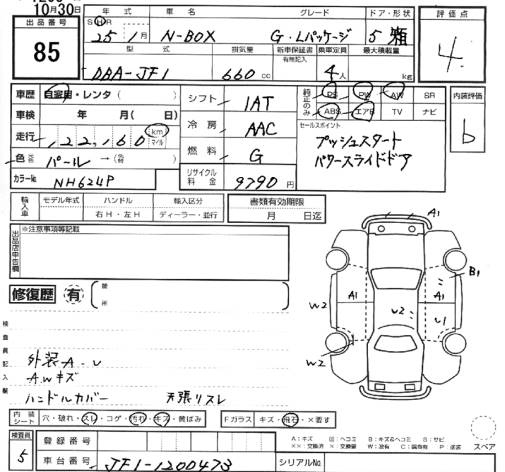 10月30日
出品番号 85
年式 車名 グレード ドア・形状
25 1月 N-BOX G・Lパッケージ 5 箱
型式 排気量 新車保証書 乗車定員 最大積載量
有無記入
DBA-JF1 660cc 4人 kg
評価点
4
車歴 自家用・レンタ( )
車検 年 月( 日)
走行 122,160 km マイル
色 元色 パール → 色替
カラーNo. NH624P
シフト IAT
冷房 AAC
燃料 G
リサイクル料金 9790円
純正のみ PS PW AW SR
ABS エアB TV ナビ
セールスポイント
プッシュスタート
パワースライドドア
内装評価
b
輸入車 モデル年式 ハンドル 輸入区分 書類有効期限
右H・左H ディーラー・並行 月 日迄
出品店申告欄 ※注意事項等記載
修復歴 有 箇所
検査員記入欄
外装A・U
AWキズ
ハンドルカバー 天張リスレ
A1
B1
A1
A1
W2
U2
U1
W2
W2
内装シート 穴・破れ・スレ・コゲ・汚れ・キズ・黄ばみ
Fガラス キズ・飛石・×要す
検査員 5
登録番号
車台番号 JF1-1200473
シリアルNo.
A：キズ U：ヘコミ B：キズ&ヘコミ S：サビ
スペア